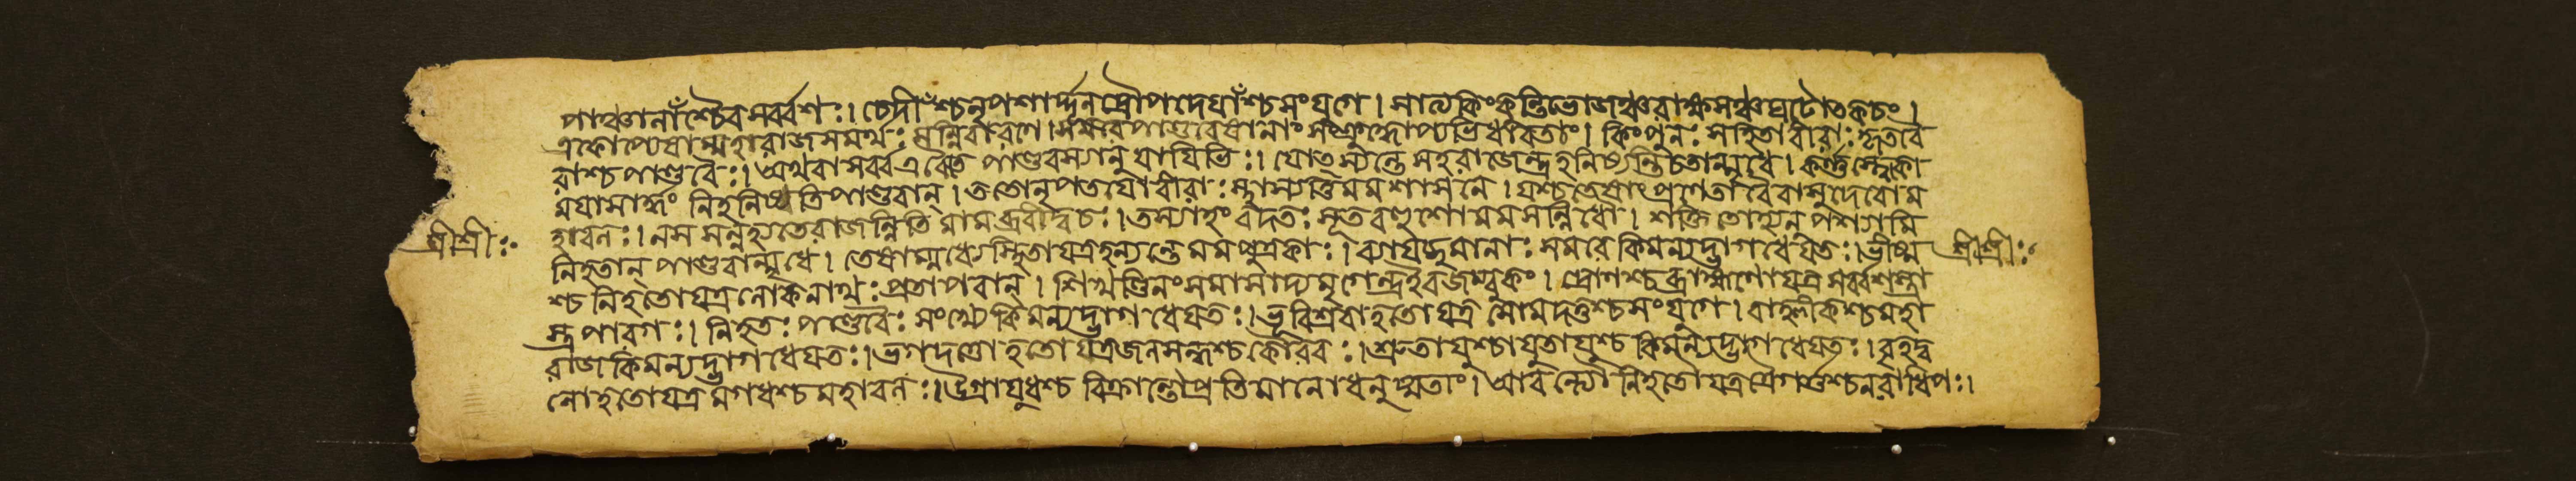 পাঞ্চালাঁশ্চৈব সর্ব্বশঃ। চেদীঁশ্চ নৃপশার্দ্দূল দ্রৌপদেয়াঁশ্চ সংযুগে। সাত্যকিং কুন্তিভোজঞ্চ রাক্ষসঞ্চ ঘটোৎকচং।
একোপ্যেষাম্মহারাজ সমর্থঃ সন্নিবারণে। সমরে পাণ্ডবেয়ানাং সংক্রুদ্ধোপ্যভিধাবতাং। কিং পুনঃ সহিতা বীরাঃ কৃতবৈ
রাশ্চ পাণ্ডবৈঃ। অথবা সর্ব্ব এবৈতে পাণ্ডবস্যানুযায়িভিঃ। যোৎস্যন্তে সহ রাজেন্দ্র হনিষ্যন্তি চ তান্মৃধে। কর্ণস্ত্বেকো
ময়া সার্দ্ধং নিহনিষ্যতি পাণ্ডবান্। ততো নৃপতয়ো বীরাঃ স্থাস্যন্তি মম শাসনে। যশ্চ তেষাং প্রণেতা বৈ বাসুদেবো ম
হাবলঃ। ন স সন্নহ্যতে রাজন্নিতি মামব্রবীদ্বচঃ। তস্যাহং বদতঃ সূত বহুশো মম সন্নিধৌ। শক্তিতো হ্যনুপশ্যামি
শ্রীশ্রীঃ
নিহতান্ পাণ্ডবান্মৃধে। তেষাম্মধ্যে স্থিতা যত্র হন্যন্তে মম পুত্রকাঃ। ব্যায়চ্ছমানাঃ সমরে কিমন্যদ্ভাগধেয়তঃ। ভীষ্ম
শ্রীশ্রীঃ
শ্চ নিহতো যত্র লোকনাথঃ প্রতাপবান্। শিখণ্ডিনং সমাসাদ্য মৃগেন্দ্র ইব জম্বুকং। দ্রোণশ্চ ব্রাহ্মণো যত্র সর্ব্বশস্ত্রা
স্ত্রপারগঃ। নিহতঃ পাণ্ডবৈঃ সংখ্যে কিমন্যদ্ভাগধেয়তঃ। ভূরিশ্রবা হতো যত্র সোমদত্তশ্চ সংযুগে। বাহ্লীকশ্চ মহা
রাজ কিমন্যদ্ভাগধেয়তঃ। ভগদত্তো হতো যত্র জলসন্ধশ্চ কৌরবঃ। শ্রুতায়ুশ্চাযুতায়ুশ্চ কিমন্যদ্ভাগধেয়তঃ। বৃহদ্ব
লো হতো যত্র মগধশ্চ মহাবলঃ। উগ্রায়ুধশ্চ বিক্রান্তো প্রতিমানো ধনুষ্মতাং। আবন্ত্যৌ নিহতৌ যত্র ত্রৈগর্ত্তশ্চ নরাধিপঃ।